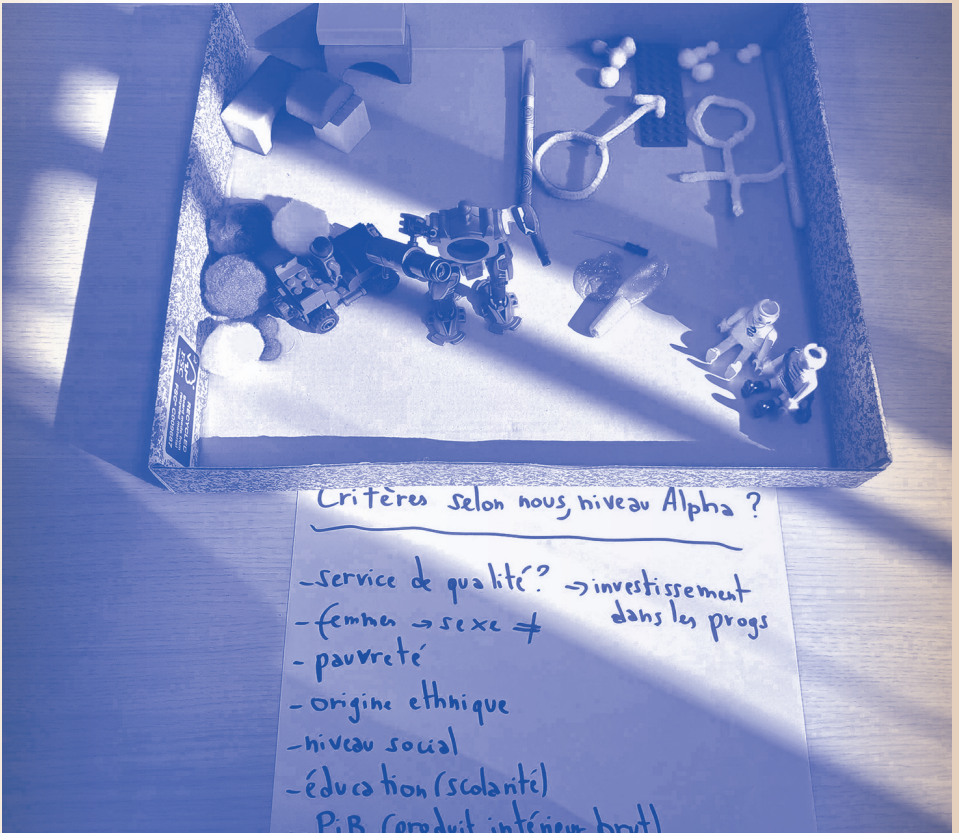 FSC
RECYCLED
Critères selon nous, niveau Alpha ?
- service de qualité ? → investissement
dans les progs
- femmes → sexe ≠
- pauvreté
- origine ethnique
- niveau social
- éducation (scolarité)
PiB (produit intérieur brut)